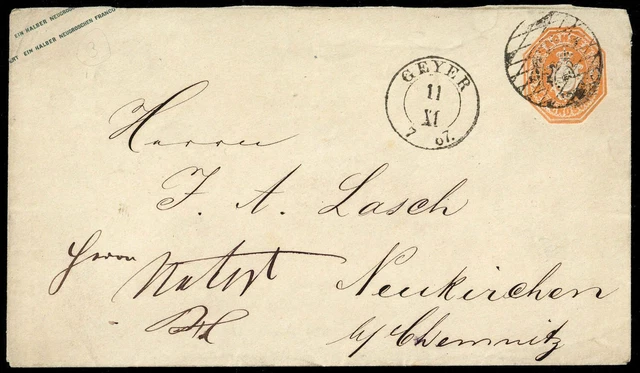 EIN HALBER NEUGROSCHEN FRANCO
EIN HALBER NEUGROSCHEN
GEYER
11
XI
7 67.
Herrn
F. A. Lasch
Herrn
Neukirchen
b/ Chemnitz